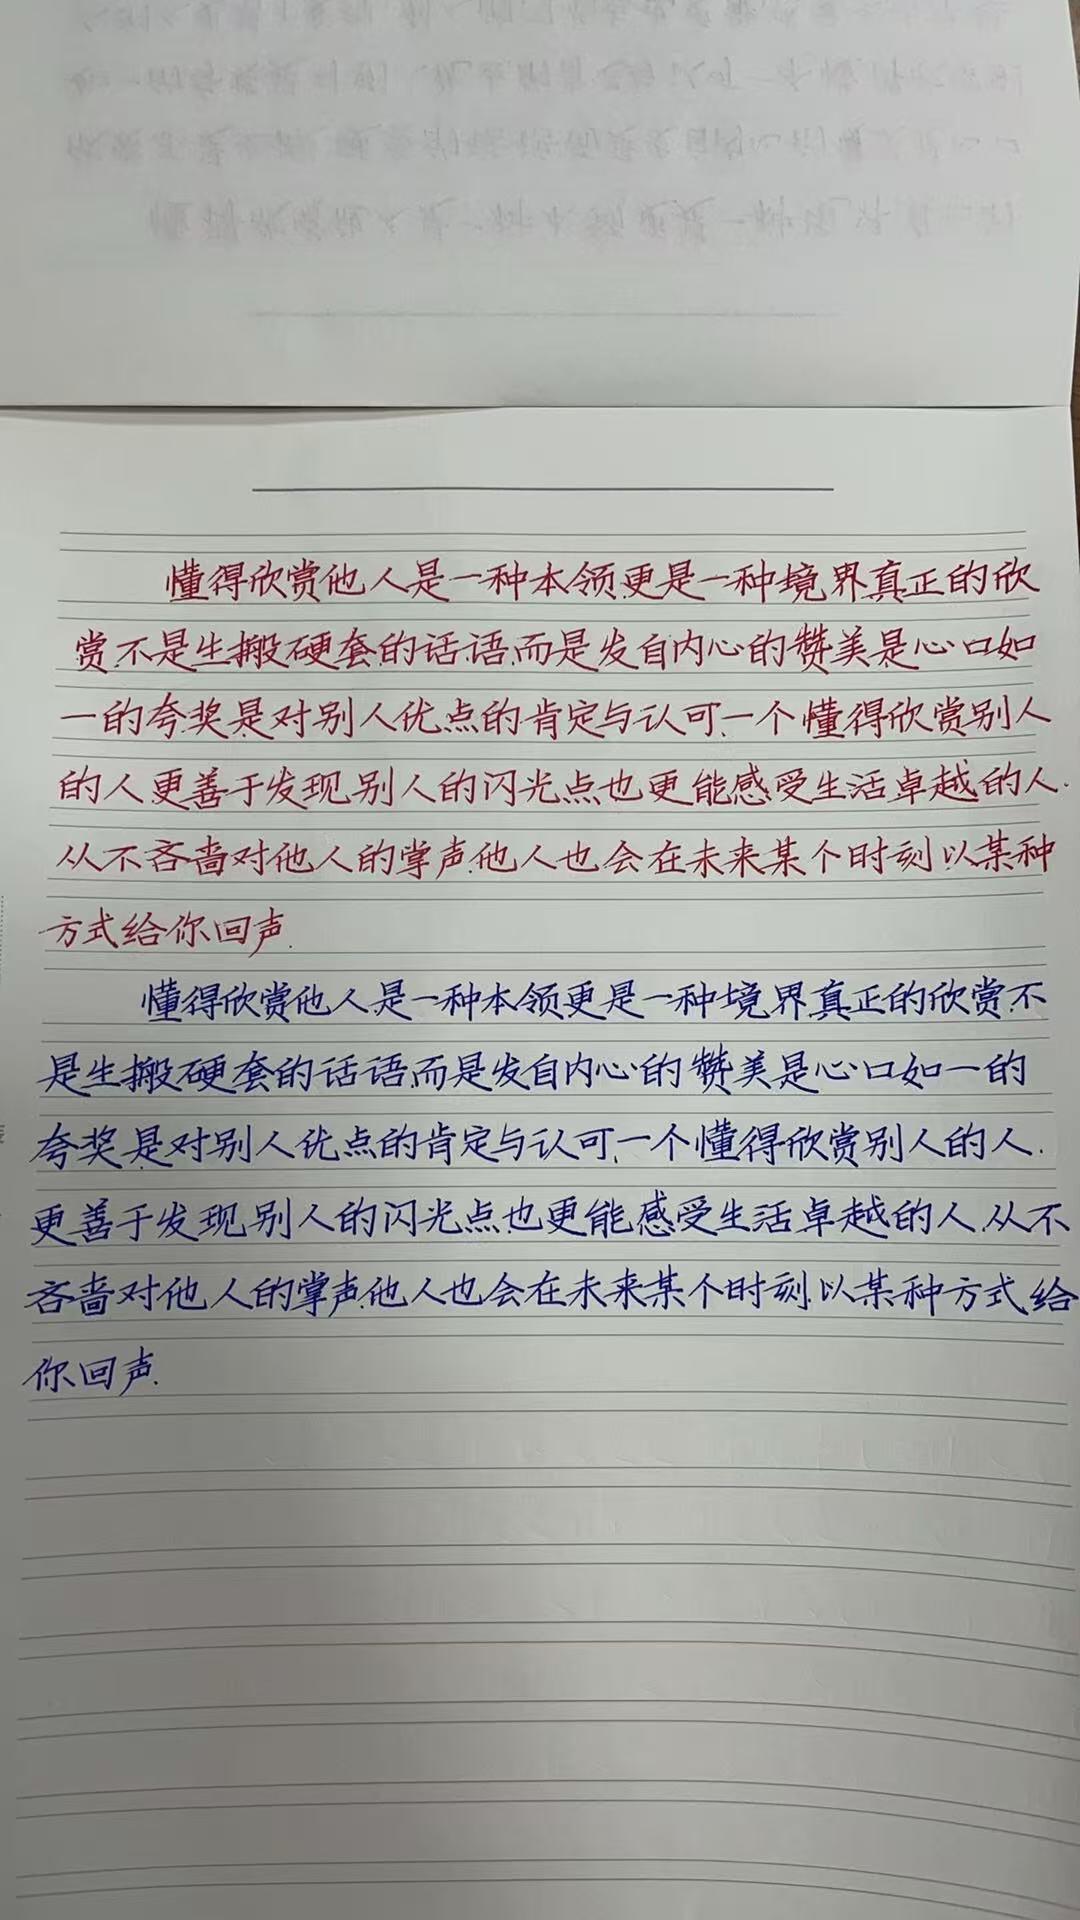 懂得欣赏他人是一种本领.更是一种境界真正的欣
赏.不是生搬硬套的话语.而是发自内心的赞美是心口如
一的夸奖.是对别人优点的肯定与认可.一个懂得欣赏别人
的人.更善于发现别人的闪光点也更能感受生活卓越的人.
从不吝啬对他人的掌声.他人也会在未来某个时刻.以某种
方式给你回声.
懂得欣赏他人.是一种本领更是一种境界真正的欣赏.不
是生搬硬套的话语.而是发自内心的赞美是心口如一的
夸奖.是对别人优点的肯定与认可.一个懂得欣赏别人的人.
更善于发现别人的闪光点也更能感受生活卓越的人.从不
吝啬对他人的掌声.他人也会在未来某个时刻.以某种方式给
你回声.